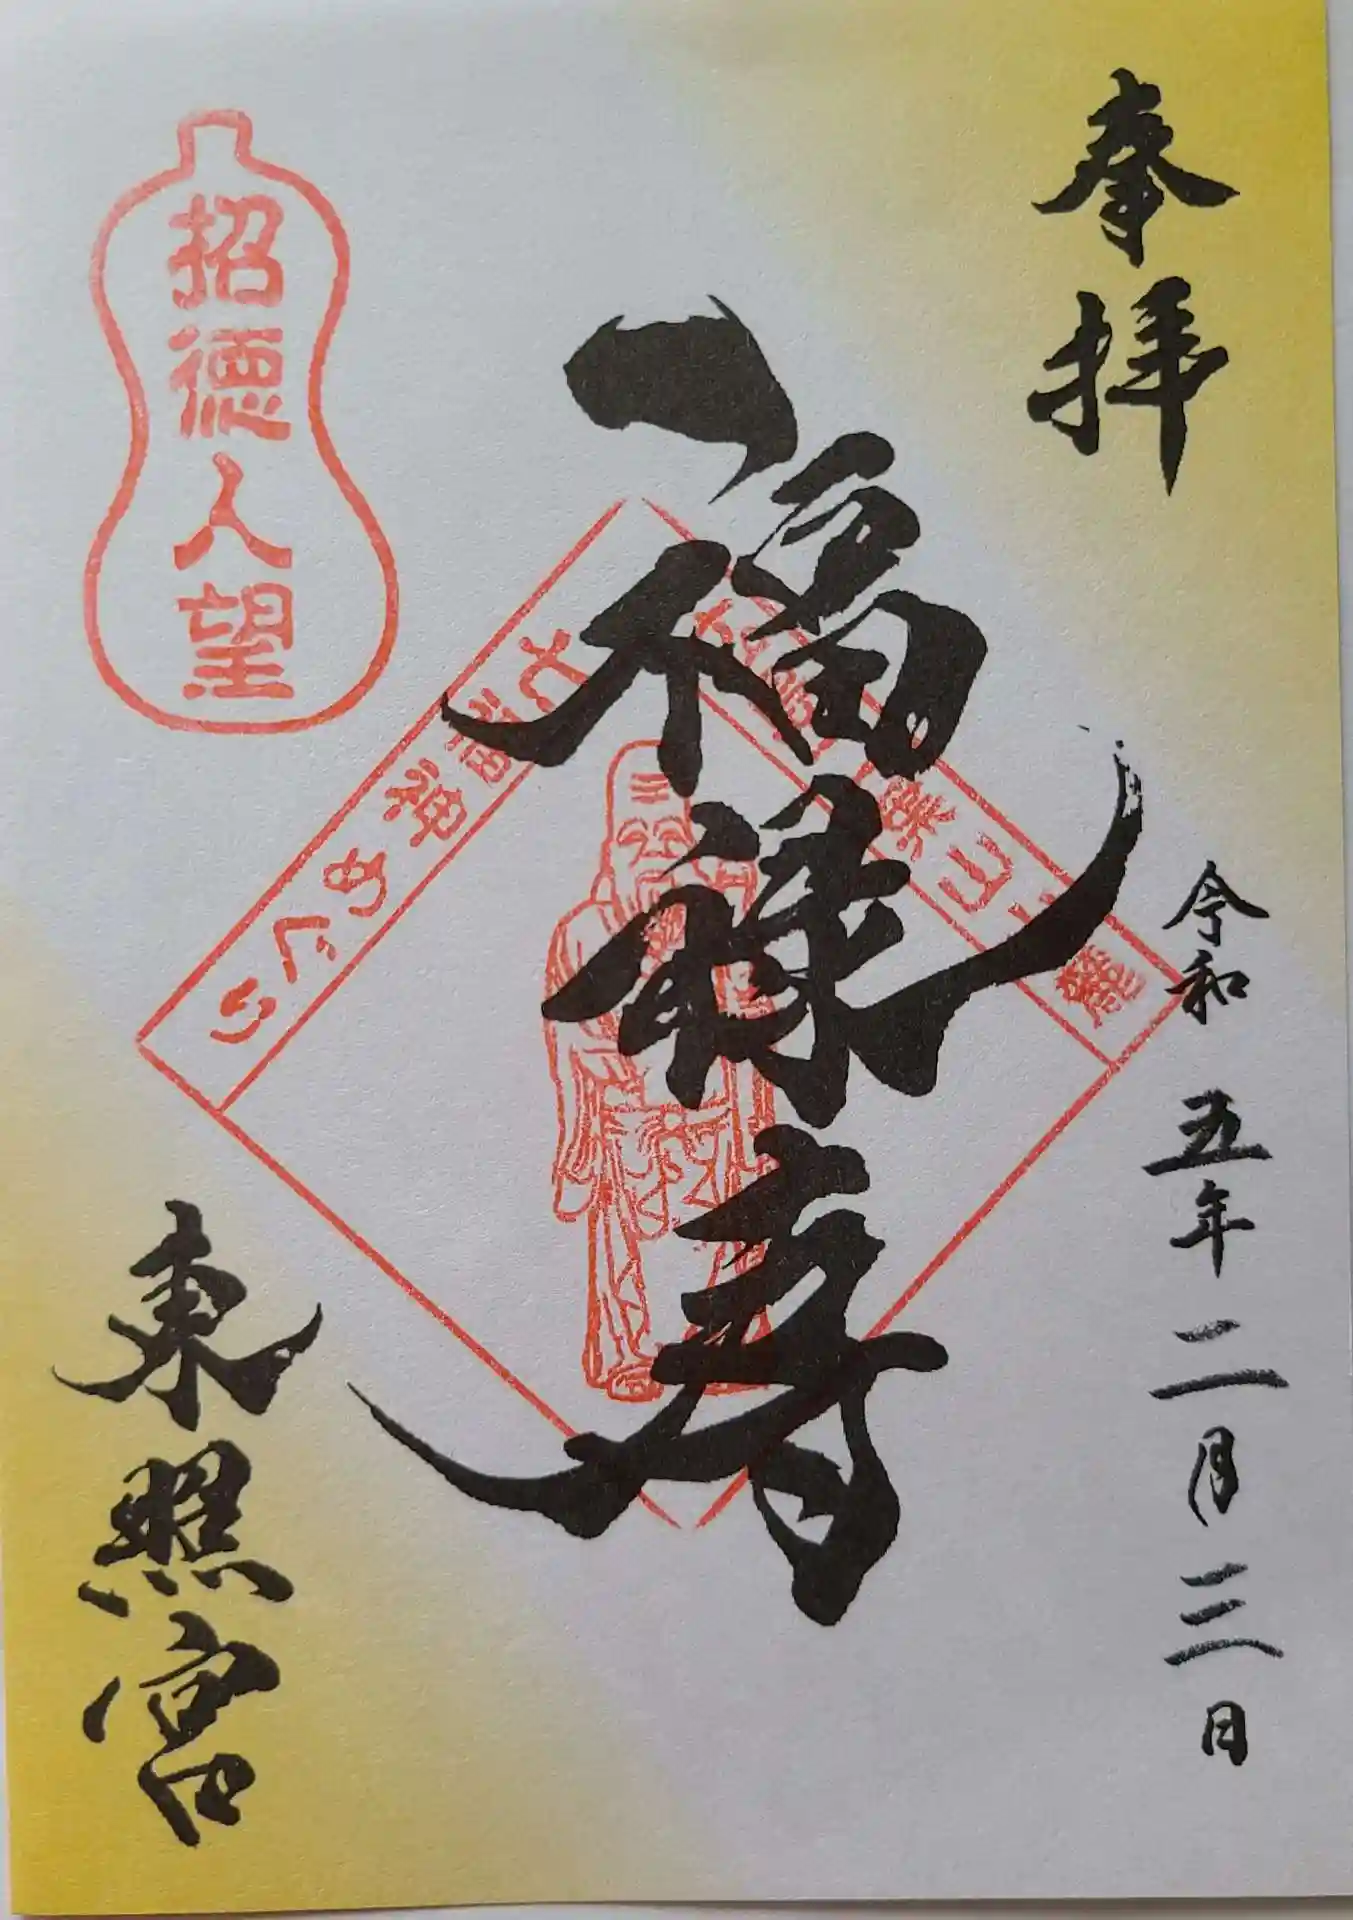 奉拝
令和五年二月三日
福禄寿
七福神めぐり
招徳人望
東照宮